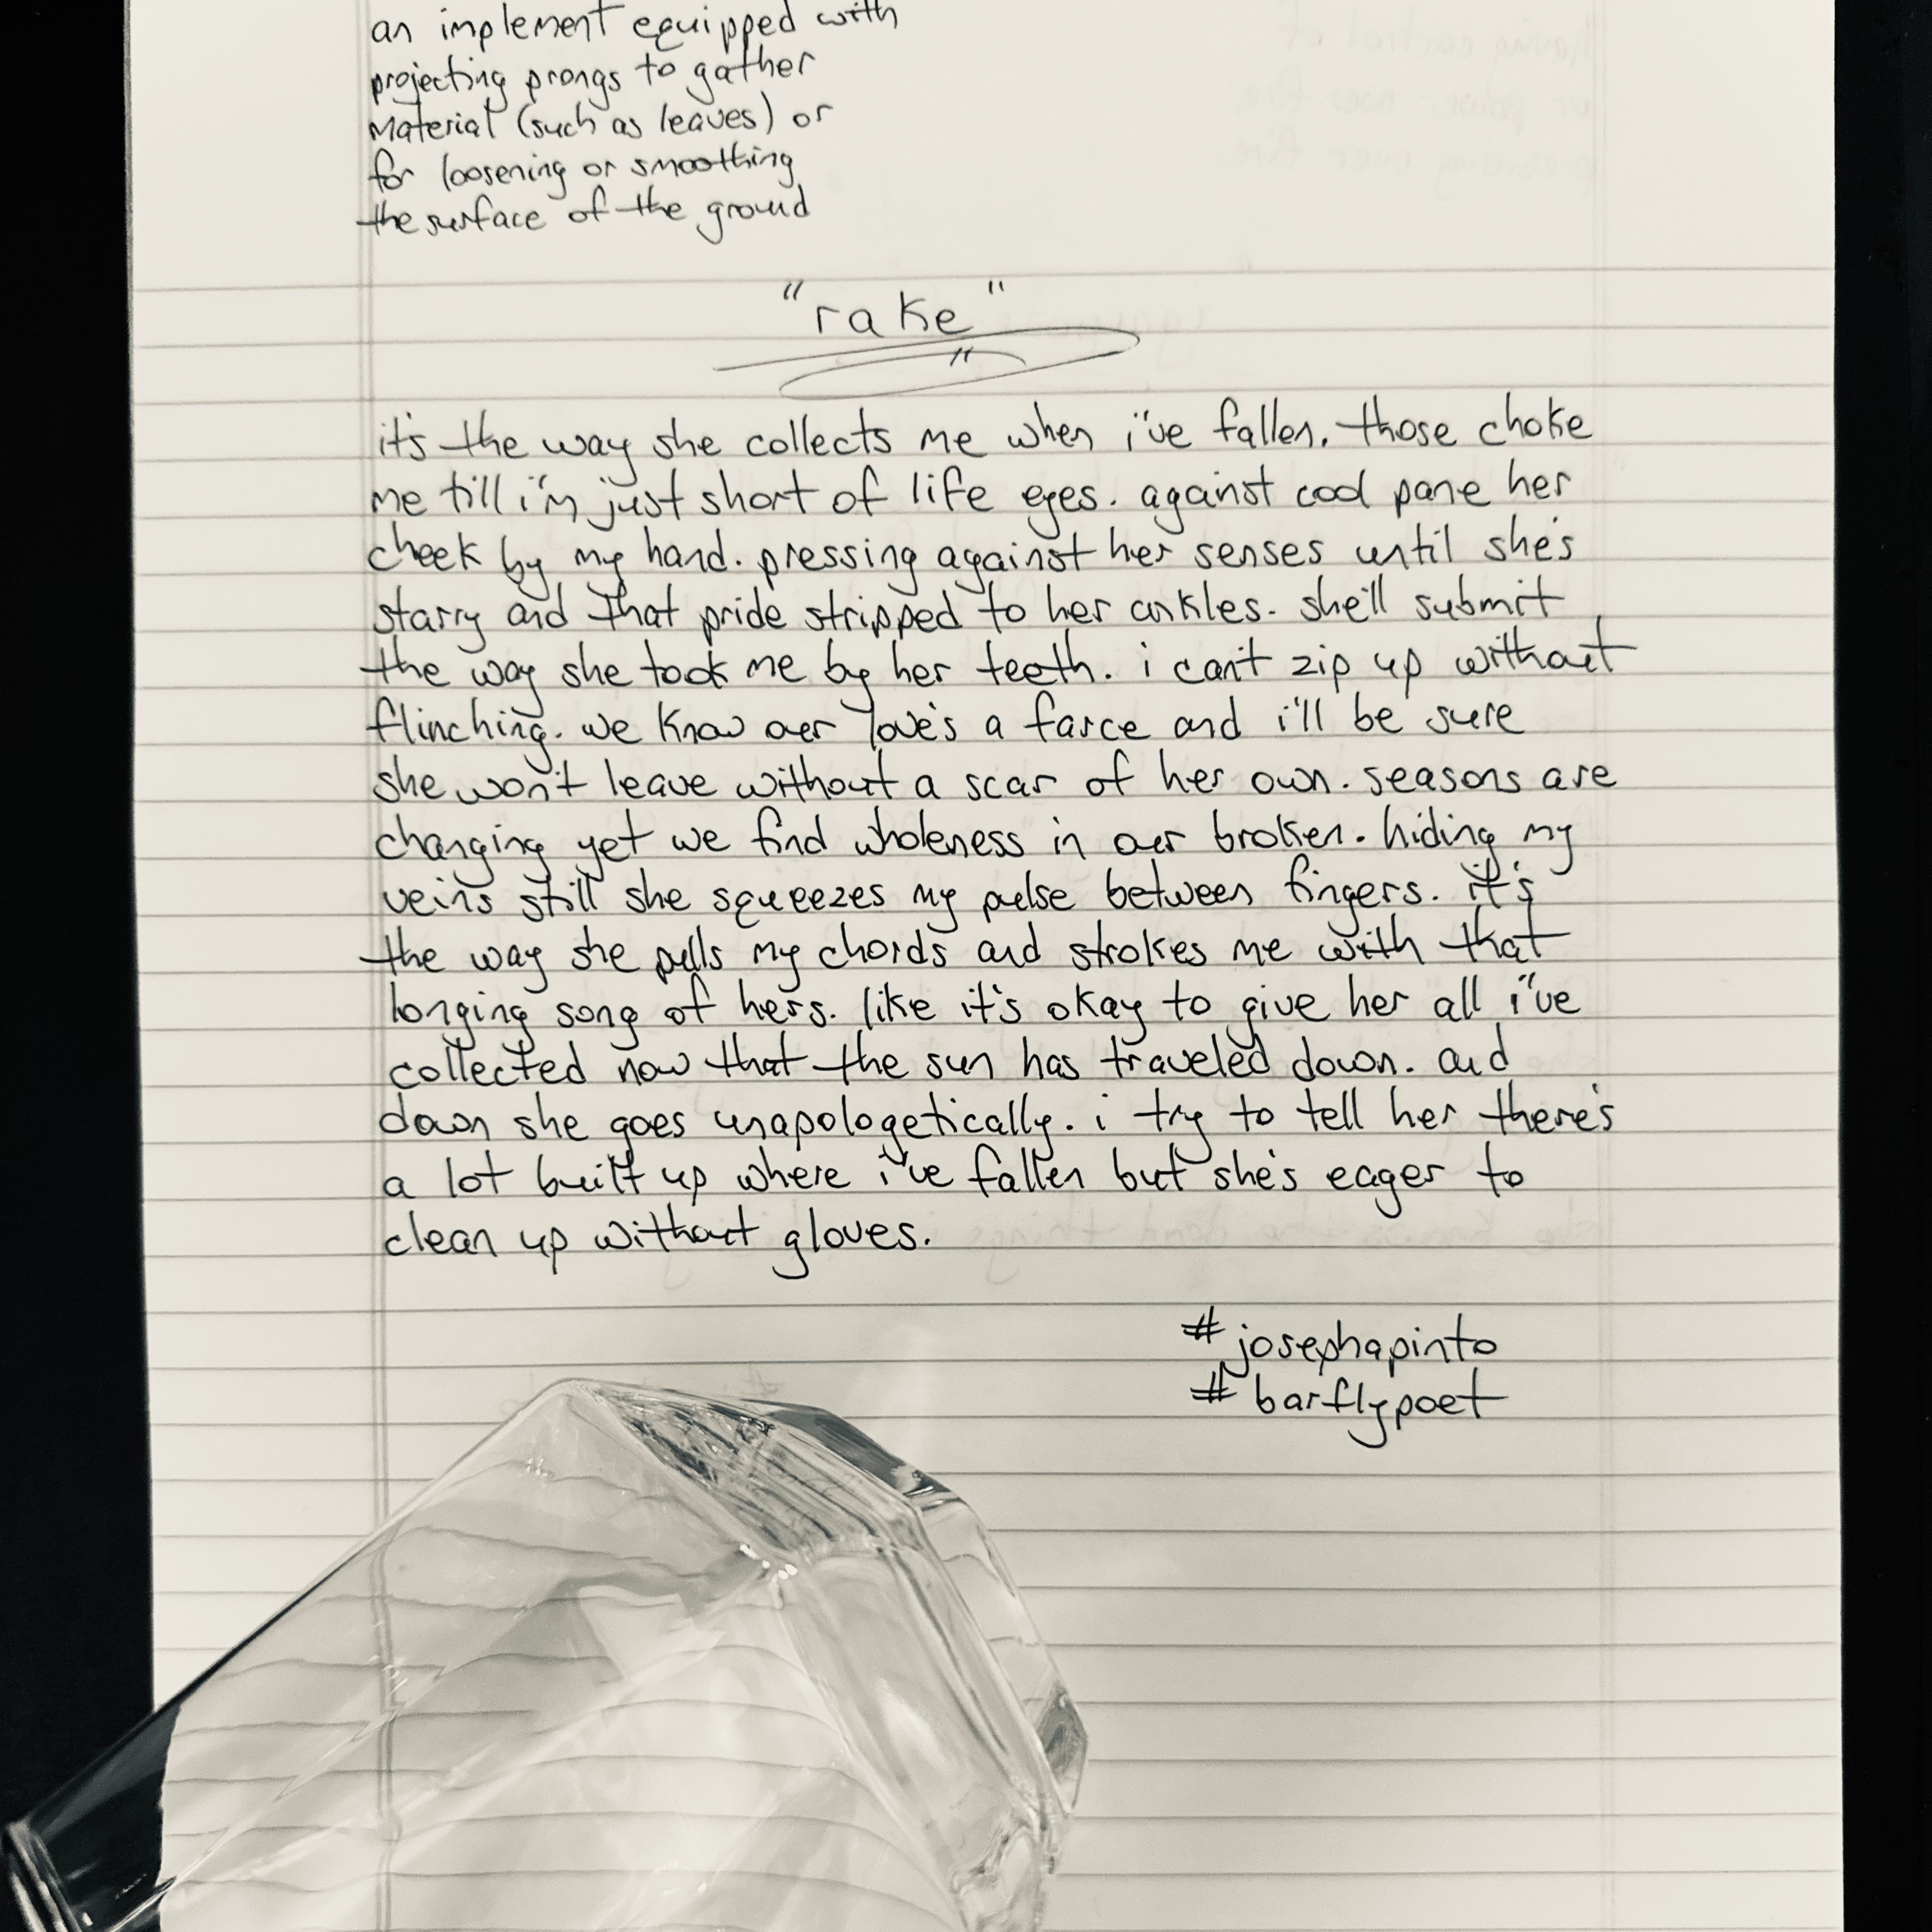 an implement equipped with
projecting prongs to gather
material (such as leaves) or
for loosening or smoothing
the surface of the ground
"rake"
"
it's the way she collects me when i've fallen. those choke
me till i'm just short of life eyes. against cool pane her
cheek by my hand. pressing against her senses until she's
starry and that pride stripped to her ankles. she'll submit
the way she took me by her teeth. i can't zip up without
flinching. we know our love's a farce and i'll be sure
she won't leave without a scar of her own. seasons are
changing yet we find wholeness in our broken. hiding my
veins still she squeezes my pulse between fingers. it's
the way she pulls my chords and strokes me with that
longing song of hers. like it's okay to give her all i've
collected now that the sun has traveled down. and
down she goes unapologetically. i try to tell her there's
a lot built up where i've fallen but she's eager to
clean up without gloves.
#josephapinto
#barflypoet